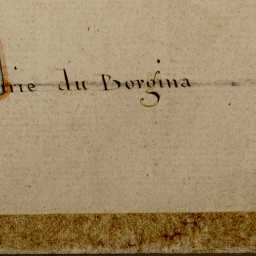 rie du Borgina